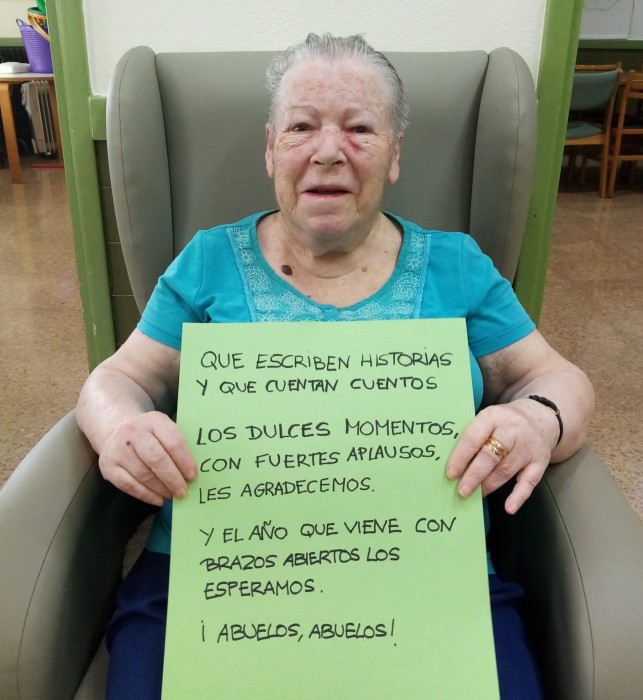 QUE ESCRIBEN HISTORIAS
Y QUE CUENTAN CUENTOS
LOS DULCES MOMENTOS,
CON FUERTES APLAUSOS,
LES AGRADECEMOS.
Y EL AÑO QUE VIENE CON
BRAZOS ABIERTOS LOS
ESPERAMOS.
¡ ABUELOS, ABUELOS!